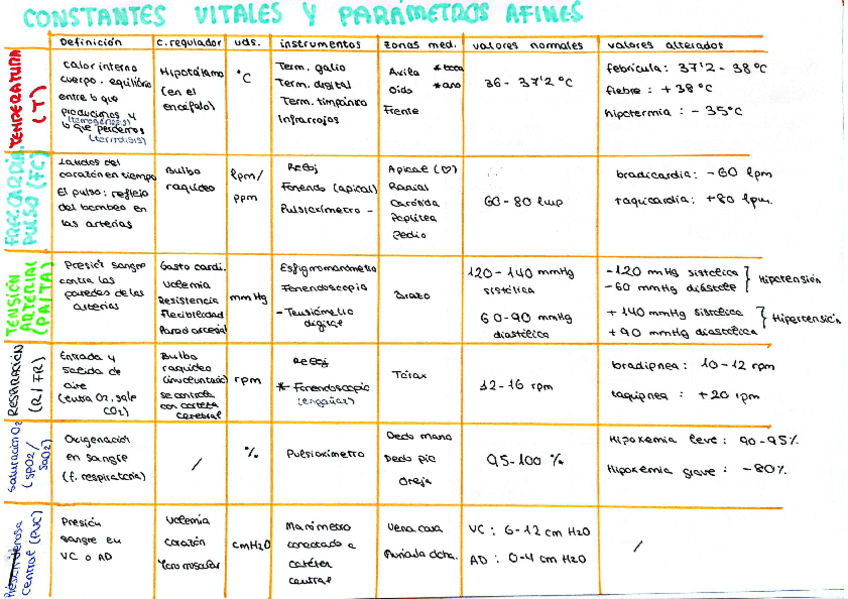 CONSTANTES VITALES Y PARÁMETROS AFINES
Definición c.regulador uds. instrumentos zonas med. valores normales valores alterados
TEMPERATURA (T)
calor interno
cuerpo. equilibrio
entre lo que
producimos y
(termogénesis)
lo que perdemos
(termólisis)
Hipotálamo
(en el
encéfalo)
°C
Term. galio
Term. digital
Term. timpánico
Infrarrojos
Axila * boca
Oído * ano
Frente
36 - 37'2 °C
febrícula: 37'2 - 38°C
fiebre: + 38°C
hipotermia: - 35°C
PULSO (FC)
Latidos del
corazón en tiempo
El pulso: reflejo
del bombeo en
las arterias
Bulbo
raquídeo
lpm/
ppm
Reloj
Fonendo (apical)
Pulsioxímetro -
Apical (♡)
Radial
Carótida
Poplítea
Pedio
60 - 80 lmp
bradicardia: - 60 lpm
taquicardia: +80 lpm.
TENSIÓN
ARTERIAL
(PA/TA)
Presión sangre
contra las
paredes de las
arterias
Gasto cardi.
Volemia
Resistencia
Flexibilidad
Pared arterial
mmHg
Esfigmomanómetro
Fonendoscopio
- Tensiómetro
digital
Brazo
120 - 140 mmHg
sistólica
60-90 mmHg
diastólica
-120 mmHg sistólica } Hipotensión
-60 mmHg diástole
+ 140 mmHg sistólica } Hipertensión
+ 90 mmHg diastólica
RESPIRACIÓN
(R / FR)
Entrada y
salida de
aire
(entra O2, sale
CO2)
Bulbo
raquídeo
(involuntario)
se controla
con corteza
cerebral
rpm
Reloj
* Fonendoscopio
(engañar)
Tórax
12-16 rpm
bradipnea: 10-12 rpm
taquipnea: +20 rpm
Saturación O2
(SPO2 /
SaO2)
Oxigenación
en sangre
(f. respiratoria)
/
%
Pulsioxímetro
Dedo mano
Dedo pie
Oreja
95-100 %
Hipoxemia leve: 90-95%
Hipoxemia grave: -80%
Presión Venosa
Central (PVC)
Presión
sangre en
VC o AD
Volemia
Corazón
Tono muscular
cmH2O
Manómetro
conectado a
catéter
central
Vena cava
Aurícula dcha.
VC: 6-12 cm H2O
AD: 0-4 cm H2O
/